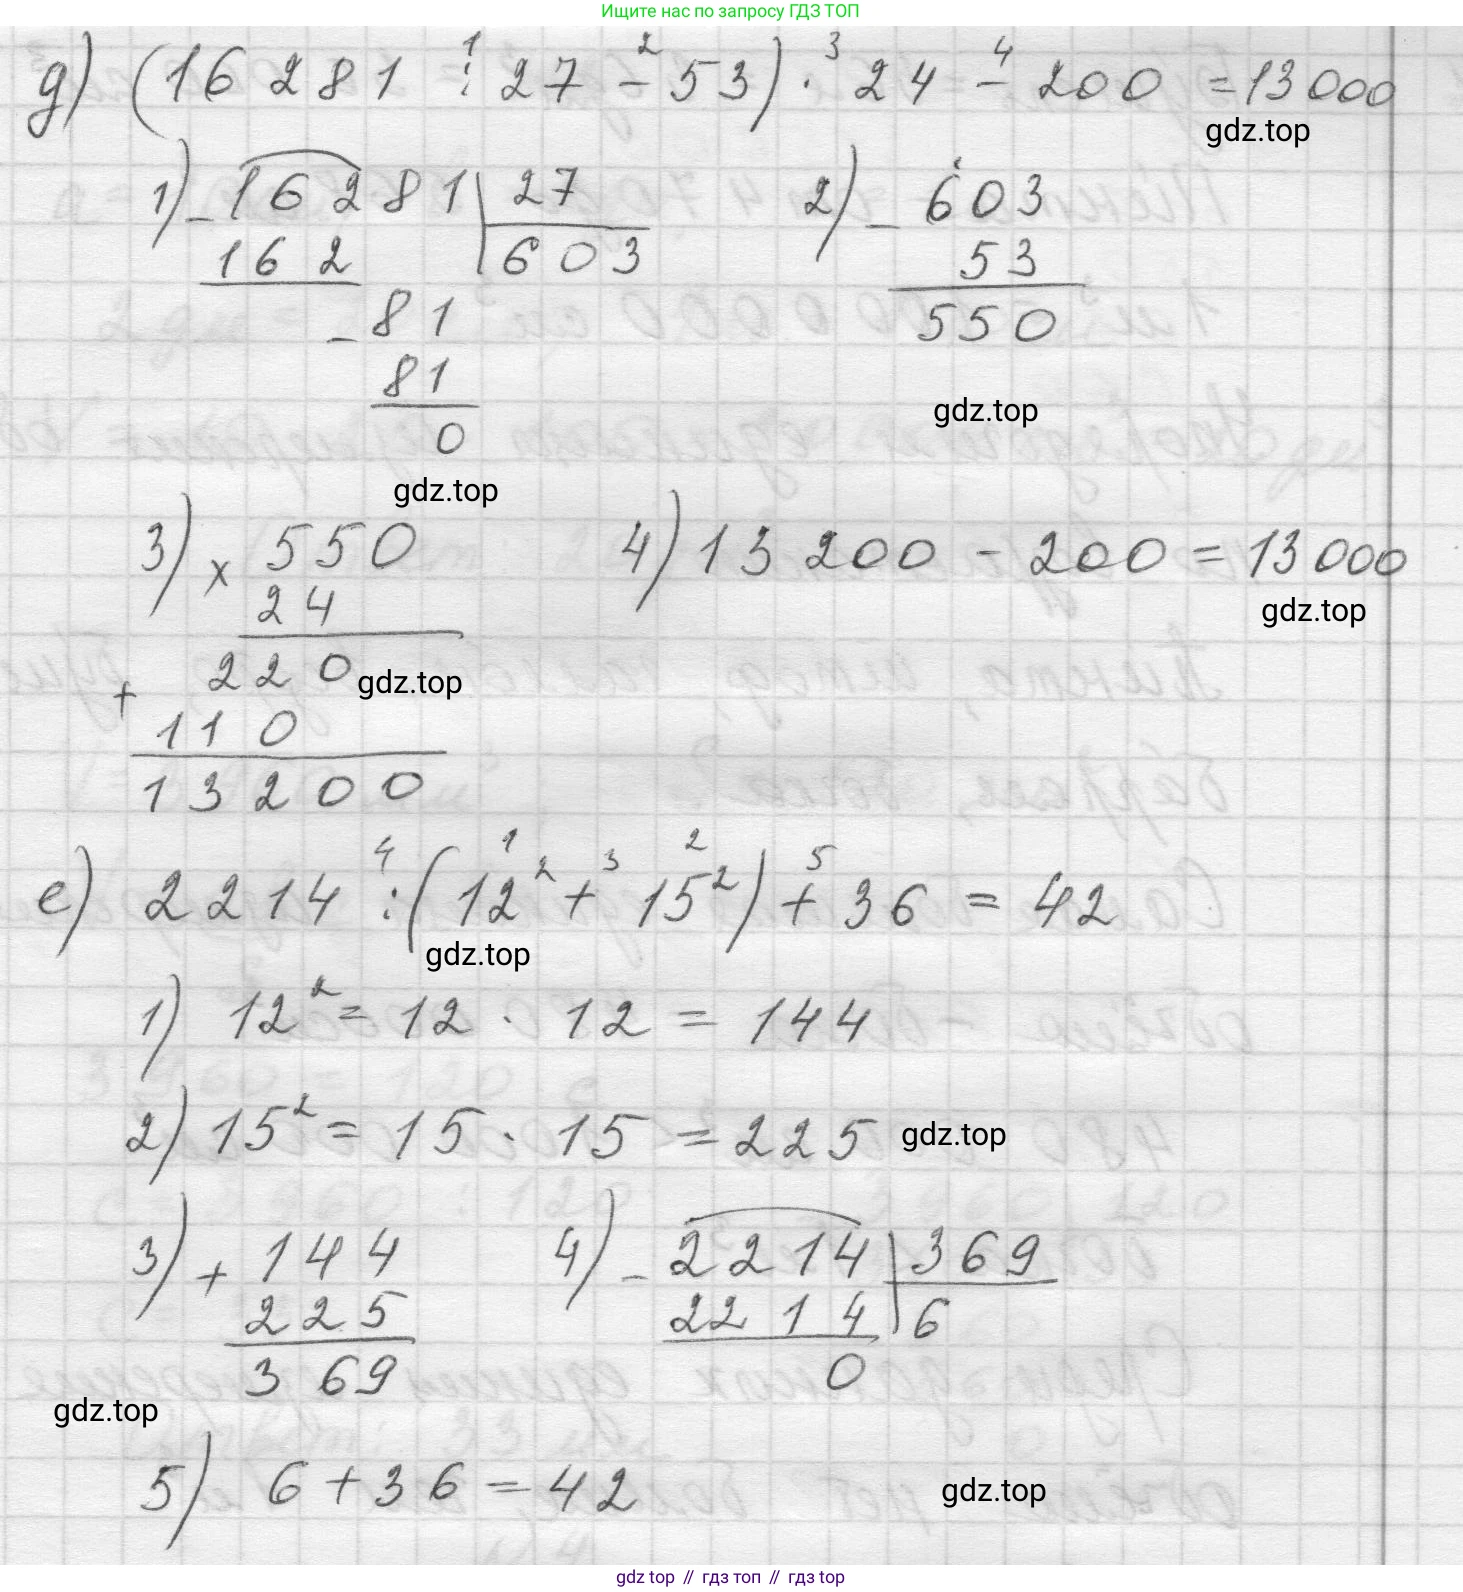 Ищите нас по запросу ГДЗ ТОП
д) (16281 : 27 - 53) · 24 - 200 = 13000
1 2 3 4
gdz.top
1) - 16281 | 27
162 | 603
- 81
81
0
gdz.top
2) - 603
53
550
gdz.top
3) x 550
24
220
gdz.top
+ 110
13200
4) 13200 - 200 = 13000
gdz.top
4 1 3 2 5
е) 2214 : (12² + 15²) + 36 = 42
gdz.top
1) 12² = 12 · 12 = 144
2) 15² = 15 · 15 = 225
gdz.top
3) + 144
225
369
gdz.top
4) - 2214 | 369
2214 | 6
0
5) 6 + 36 = 42
gdz.top
gdz top // гдз топ // гдз top